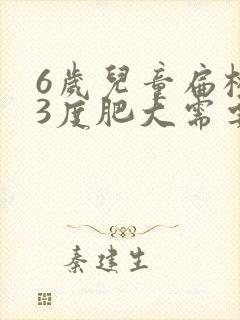 6歲兒童扁
3度肥大需
秦建生